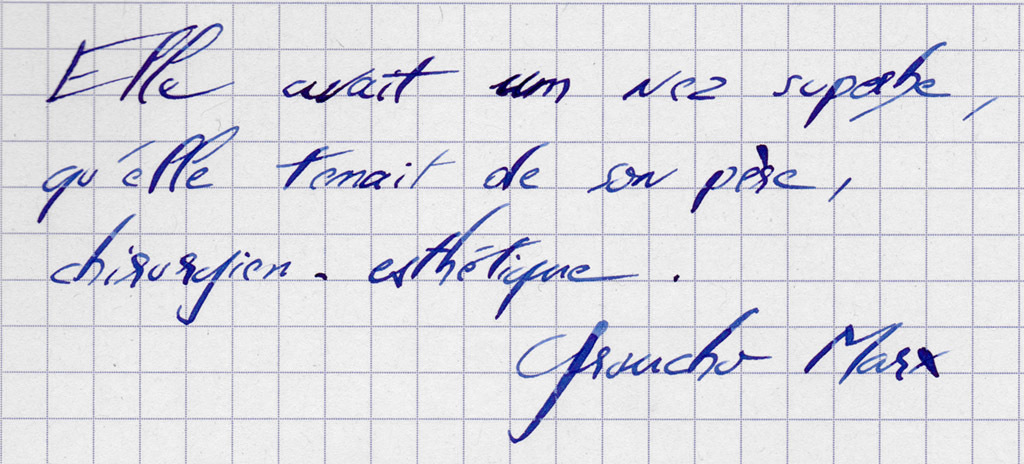 Elle avait un nez superbe,
qu'elle tenait de son père,
chirurgien - esthétique.
Groucho Marx